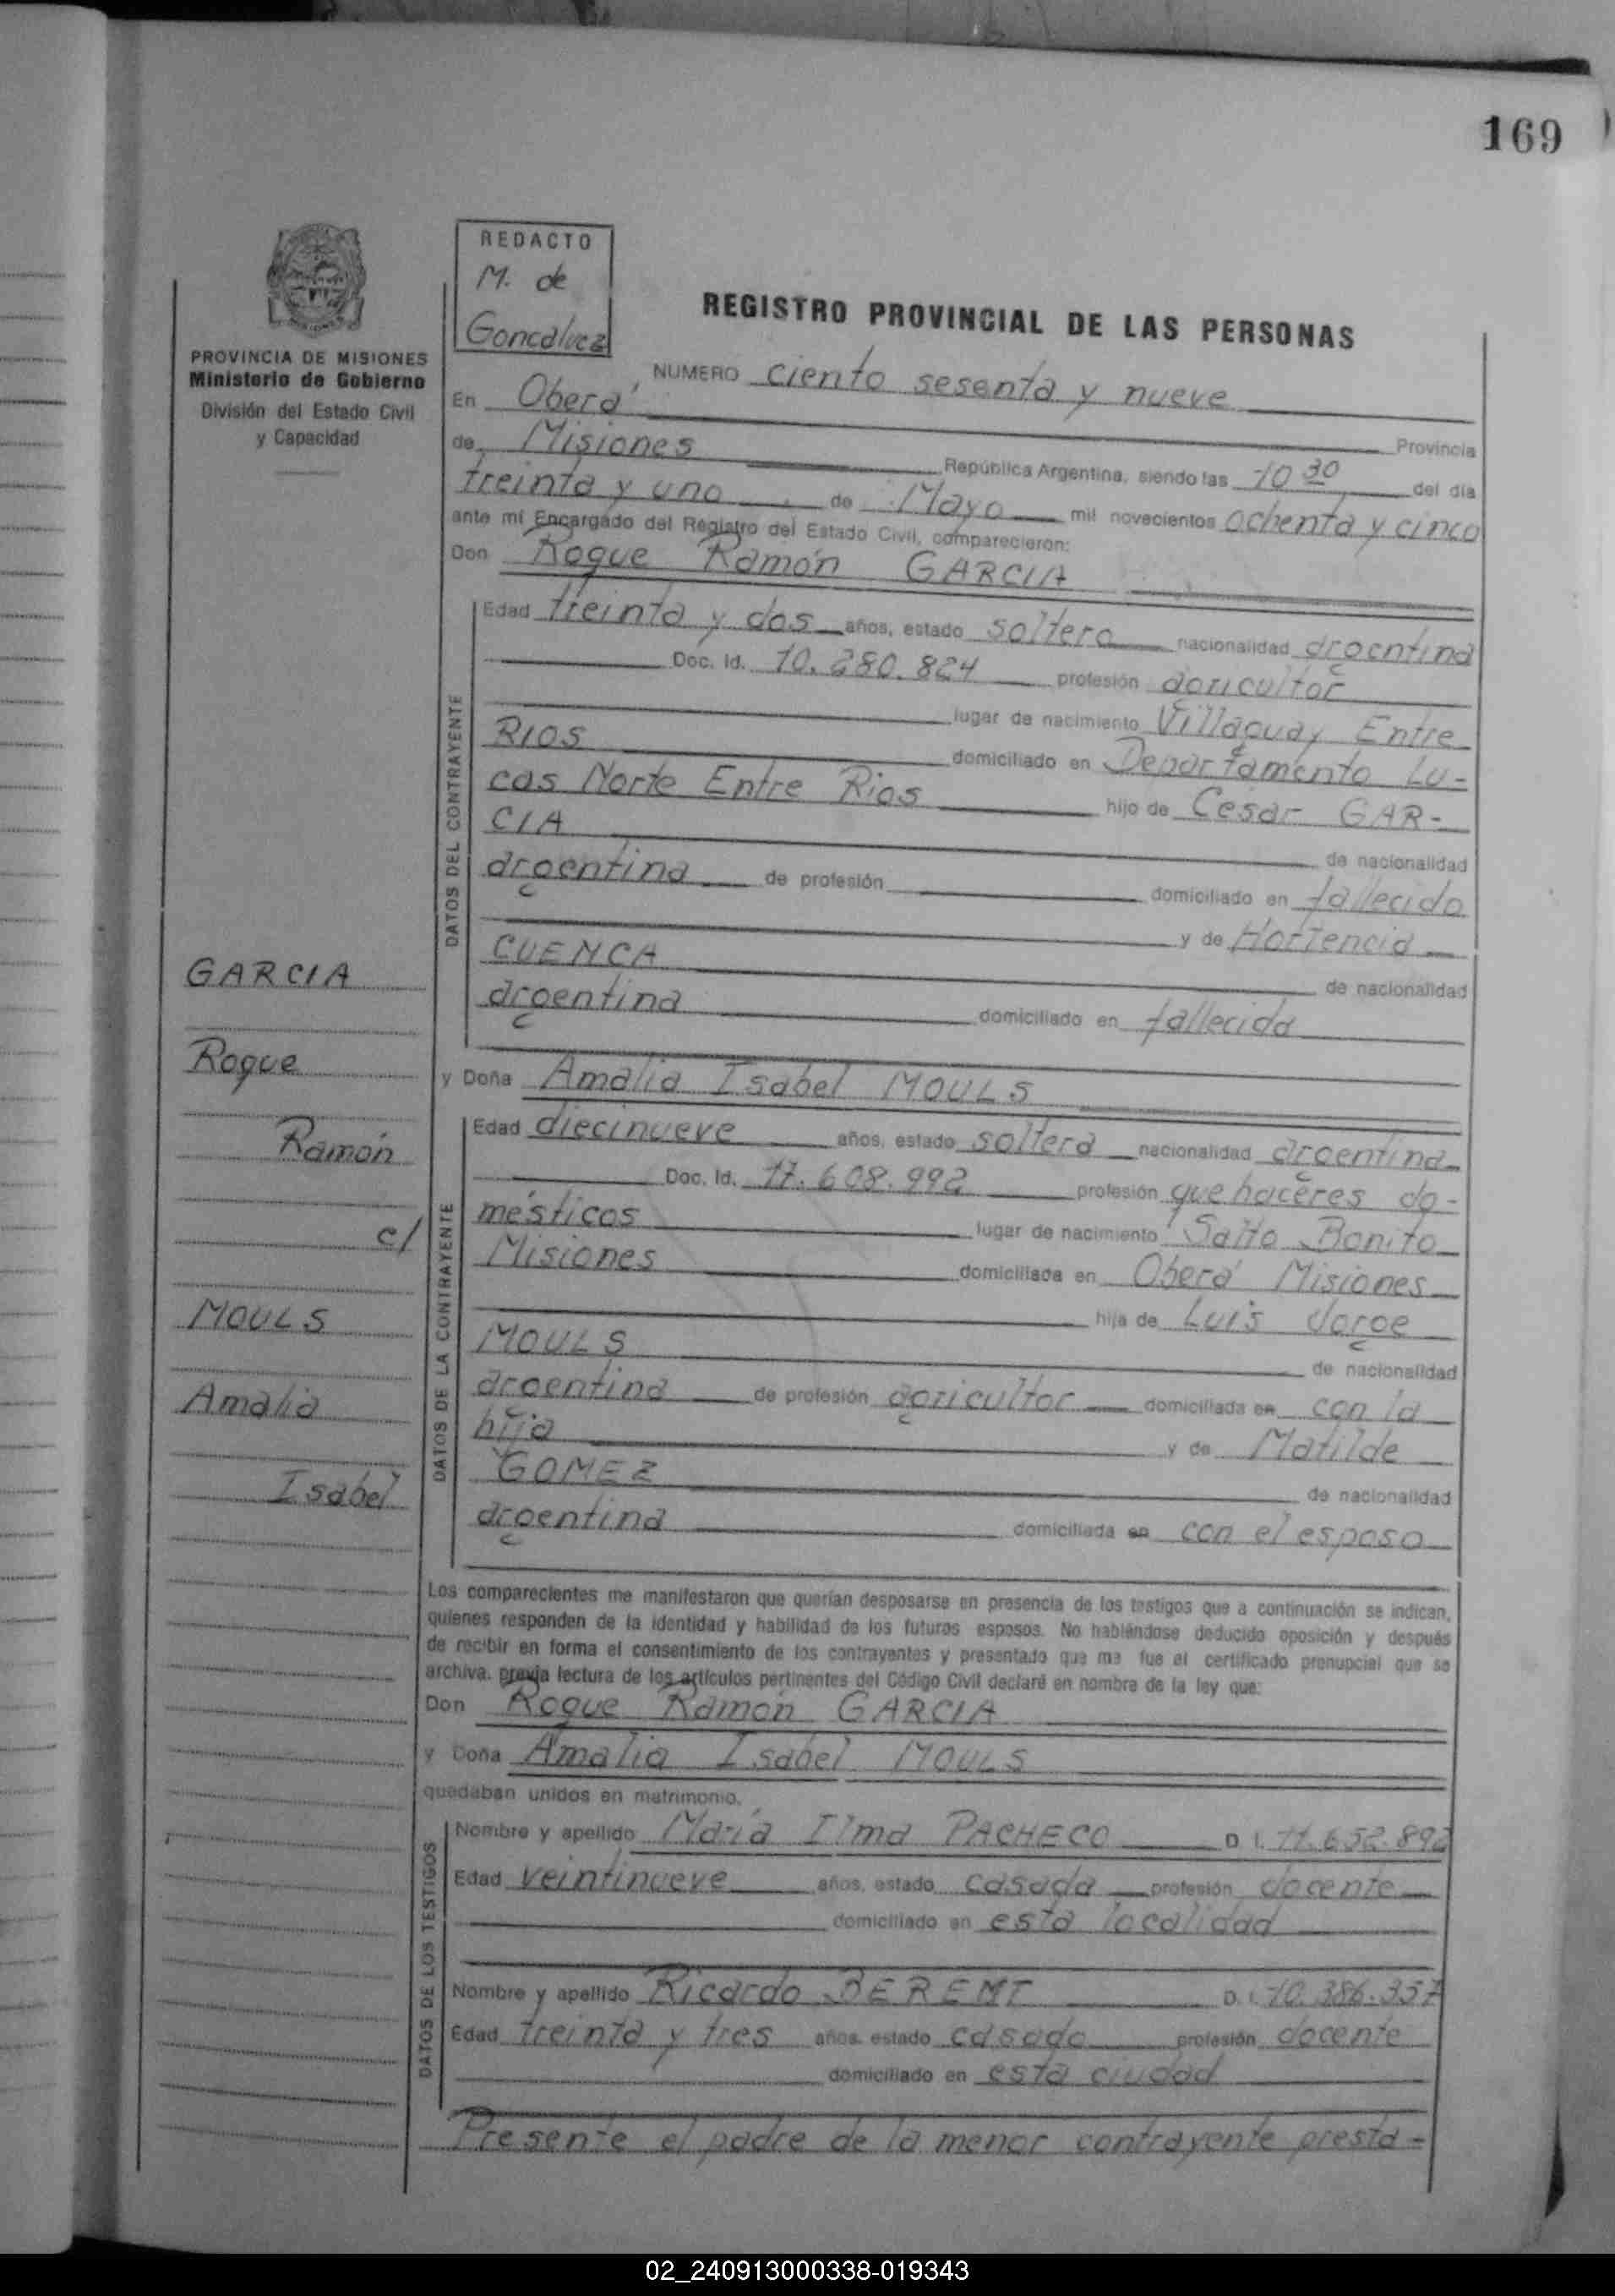 169
REDACTO
M. de
Goncalvez
REGISTRO PROVINCIAL DE LAS PERSONAS
PROVINCIA DE MISIONES
Ministerio de Gobierno
División del Estado Civil
y Capacidad
NUMERO ciento sesenta y nueve
En Oberá Provincia
de Misiones República Argentina, siendo las 10 30 del día
treinta y uno de Mayo mil novecientos ochenta y cinco
ante mí Encargado del Registro del Estado Civil, comparecieron:
Don Roque Ramón GARCIA
DATOS DEL CONTRAYENTE
Edad treinta y dos años, estado soltero nacionalidad argentina
Doc. Id. 10.280.824 profesión agricultor
lugar de nacimiento Villaguay Entre
RIOS domiciliado en Departamento Lu-
cas Norte Entre Rios hijo de Cesar GAR-
CIA de nacionalidad
argentina de profesión domiciliado en fallecido
y de Hortencia
CUENCA de nacionalidad
argentina domiciliado en fallecida
y Doña Amalia Isabel MOULS
DATOS DE LA CONTRAYENTE
Edad diecinueve años, estado soltera nacionalidad argentina
Doc. Id. 17.608.992 profesión quehaceres do-
mésticos lugar de nacimiento Salto Bonito
Misiones domiciliada en Oberá Misiones
hija de Luis Jorge
MOULS de nacionalidad
argentina de profesión agricultor domiciliada en con la
hija y de Matilde
GOMEZ de nacionalidad
argentina domiciliada en con el esposo
GARCIA
Roque
Ramón
c/
MOULS
Amalia
Isabel
Los comparecientes me manifestaron que querían desposarse en presencia de los testigos que a continuación se indican,
quienes responden de la identidad y habilidad de los futuros esposos. No habiéndose deducido oposición y después
de recibir en forma el consentimiento de los contrayentes y presentado que me fue el certificado prenupcial que se
archiva. previa lectura de los artículos pertinentes del Código Civil declaré en nombre de la ley que:
Don Roque Ramón GARCIA
y Doña Amalia Isabel MOULS
quedaban unidos en matrimonio.
DATOS DE LOS TESTIGOS
Nombre y apellido María Ilma PACHECO D. I. 11.652.892
Edad veintinueve años, estado casada profesión docente
domiciliado en esta localidad
Nombre y apellido Ricardo BEREMT D. I. 10.386.357
Edad treinta y tres años, estado casado profesión docente
domiciliado en esta ciudad
Presente el padre de la menor contrayente presta-
02_240913000338-019343